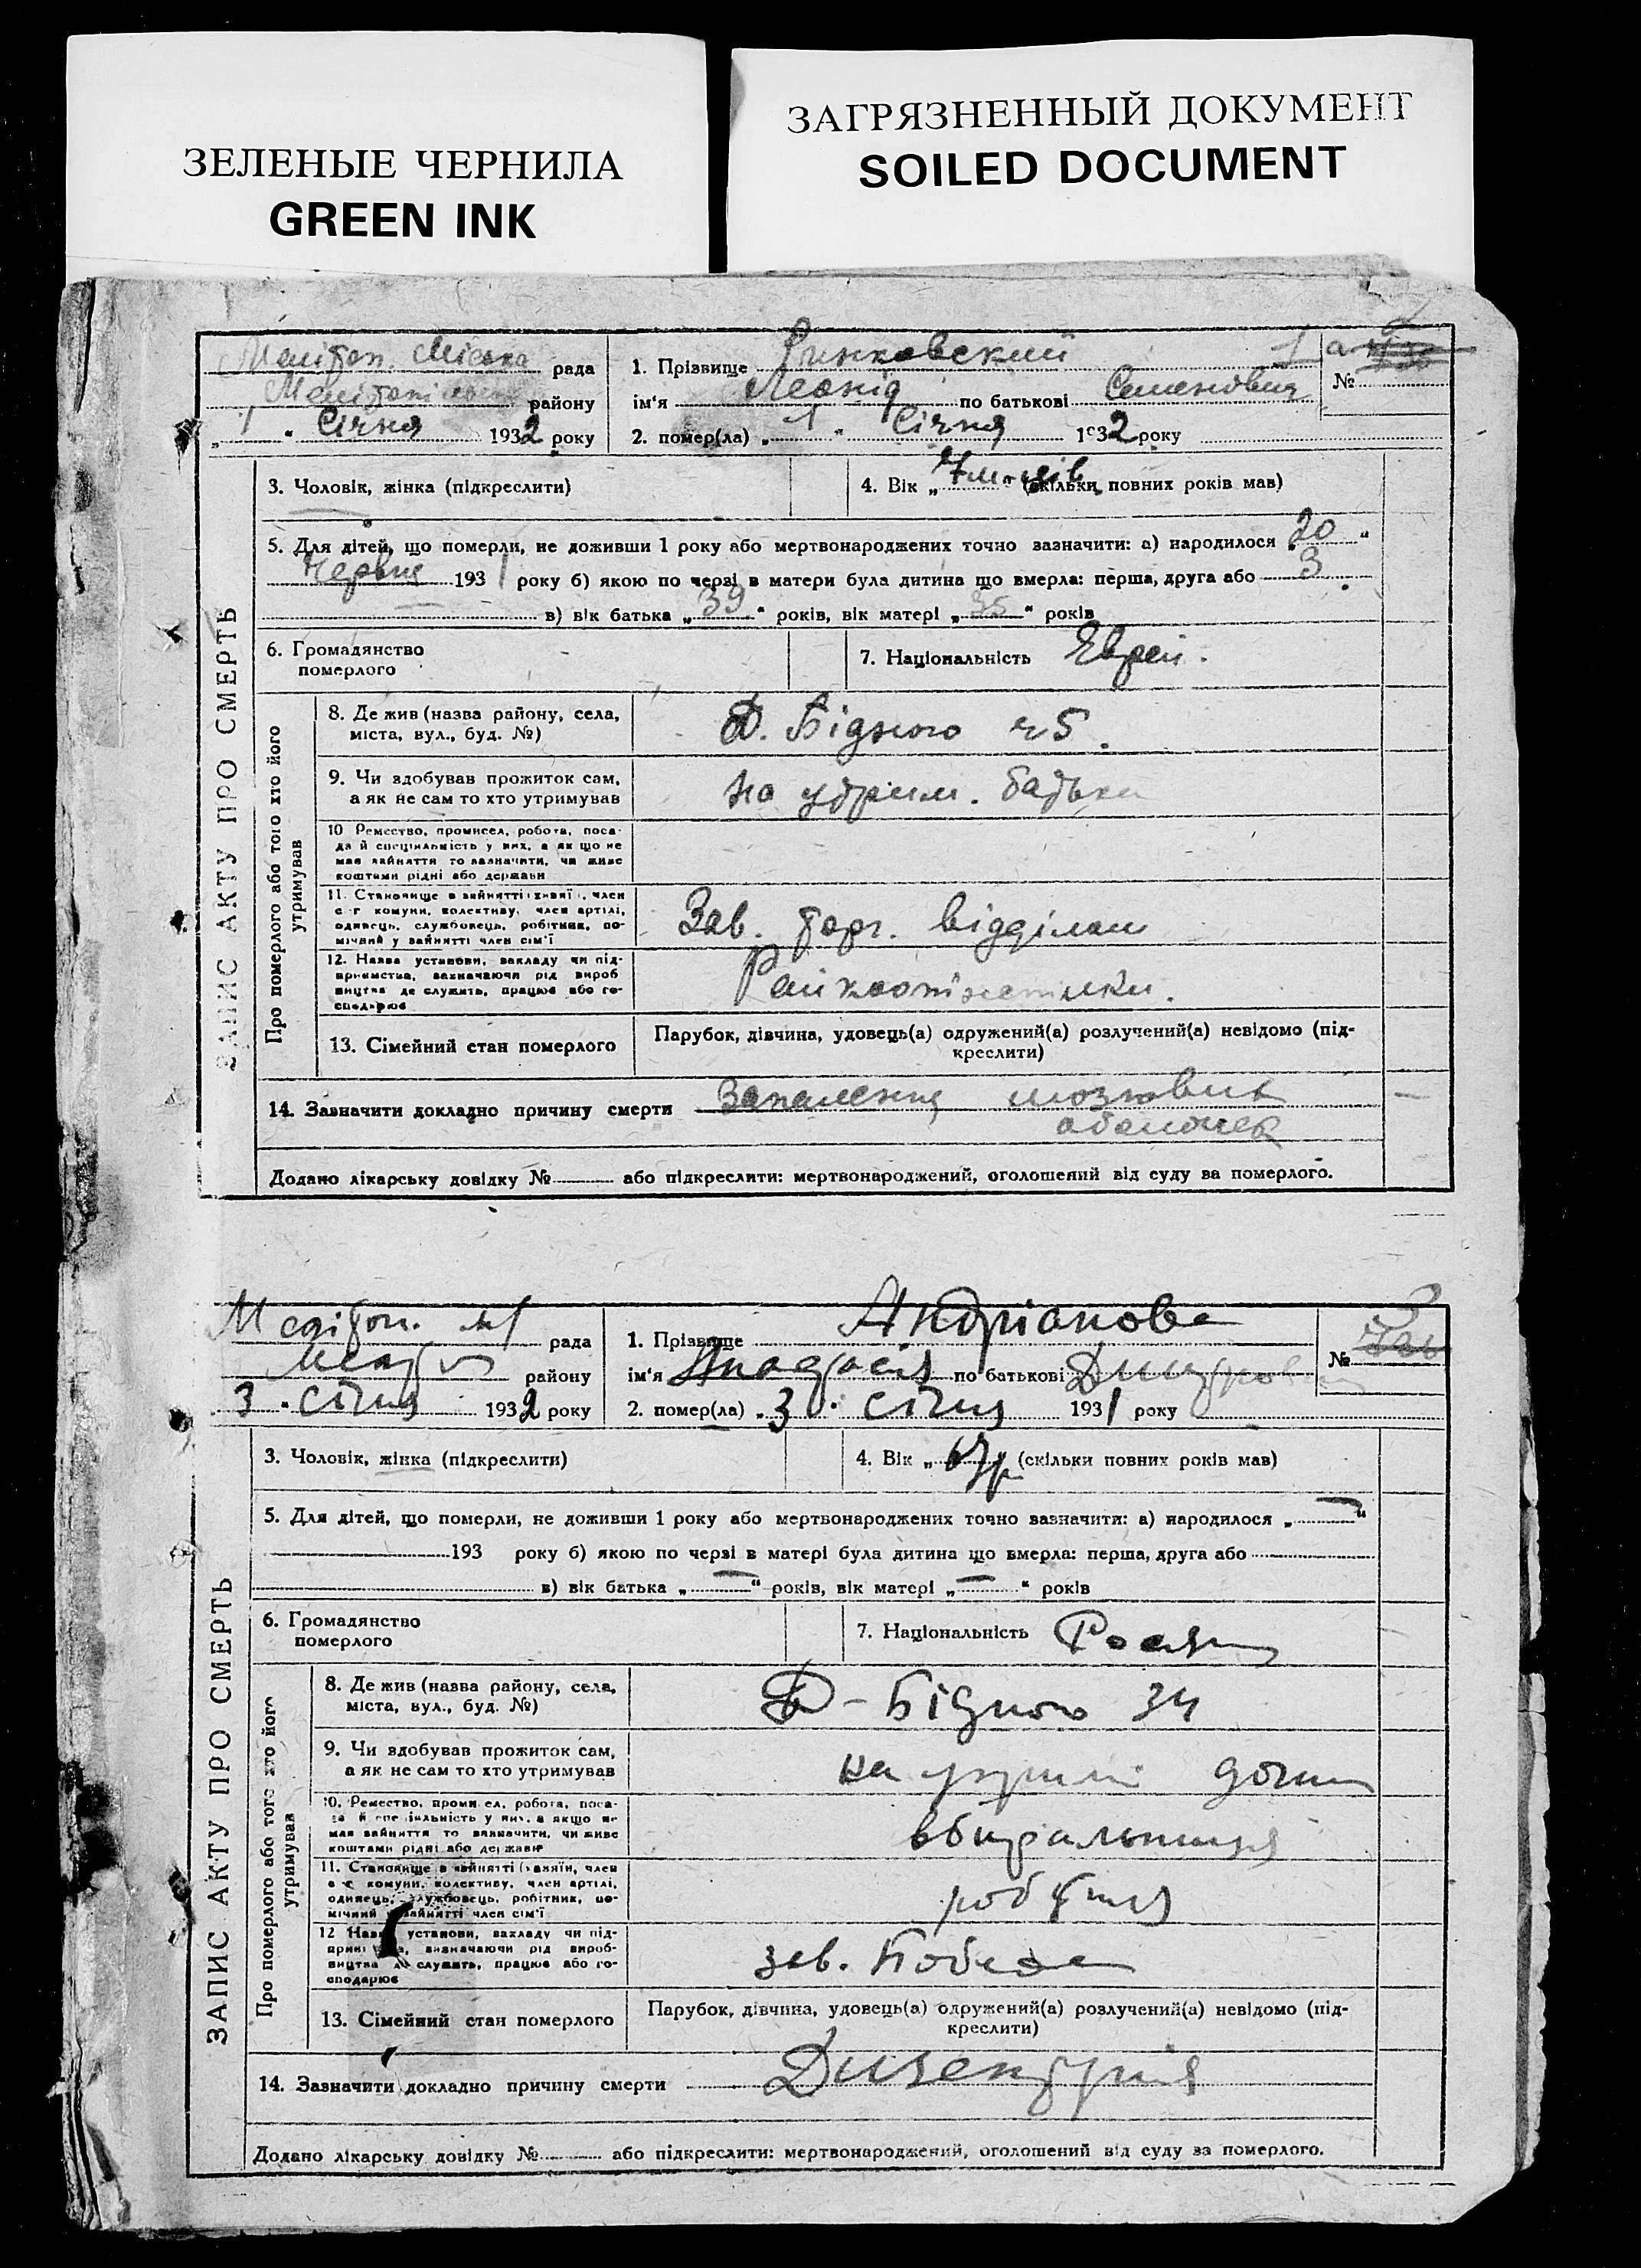 ЗЕЛЕНЫЕ ЧЕРНИЛА
GREEN INK
ЗАГРЯЗНЕННЫЙ ДОКУМЕНТ
SOILED DOCUMENT
ЗАПИС АКТУ ПРО СМЕРТЬ
Меліտոп. Міська рада
Меліտопільск району
"1" Січня 1932 року
1. Прізвище Ринковский
№
ім'я Леонід по батькові Семенович
2. помер(ла) "1" Січня 1932 року
3. Чоловік, жінка (підкреслити)
4. Вік " 7 " (скільки повних років мав)
5. Для дітей, що померли, не доживши 1 року або мертвонароджених точно зазначити: а) народилося "20"
Червня 1931 року б) якою по черзі в матери була дитина що вмерла: перша, друга або 3
в) вік батька "39" років, вік матері "35" років
6. Громадянство померлого
7. Національність Еврей.
Про померлого або того хто його утримував
8. Де жив (назва району, села, міста, вул., буд. №)
Д. Бідного ч 5.
9. Чи здобував прожиток сам, а як не сам то хто утримував
На утрим. батька
10. Ремество, промисел, робота, посада й спеціяльність у них, а як що не мав зайняття то зазначити, чи живе коштами рідні або держави
11. Становище в зайнятті: хазяїн, член с-г комуни, колективу, член артілі, одинець, службовець, робітник, помічний у зайнятті член сім'ї
Зав. торг. відділом
12. Назва установи, закладу чи підприємства, зазначаючи рід виробництва де служить, працює або господарює
13. Сімейний стан померлого
Парубок, дівчина, удовець(а) одружений(а) розлучений(а) невідомо (підкреслити)
14. Зазначити докладно причину смерти Запалення мозкових
оболочек
Додано лікарську довідку № або підкреслити: мертвонароджений, оголошений від суду за померлого.
ЗАПИС АКТУ ПРО СМЕРТЬ
Меліտոп. рада
району
3 " січня 1932 року
1. Прізвище Андріанова
№
ім'я Анастасія по батькові Дмитровна
2. помер(ла) "3" січня 1931 року
3. Чоловік, жінка (підкреслити)
4. Вік " (скільки повних років мав)
5. Для дітей, що померли, не доживши 1 року або мертвонароджених точно зазначити: а) народилося "—"
193 року б) якою по черзі в матері була дитина що вмерла: перша, друга або
в) вік батька "—" років, вік матері "—" років
6. Громадянство померлого
7. Національність
Про померлого або того хто його утримував
8. Де жив (назва району, села, міста, вул., буд. №)
Д-Бідного 34
9. Чи здобував прожиток сам, а як не сам то хто утримував
на утримі дочки
10. Ремество, промисел, робота, посада й спеціяльність у них, а якщо не мав зайняття то зазначити, чи живе коштами рідні або держави
вбиральниця
11. Становище в зайнятті: хазяїн, член с-г комуни, колективу, член артілі, одинець, службовець, робітник, помічний у зайнятті член сім'ї
робітниця
12 Назва установи, закладу чи підприємства, зазначаючи рід виробництва де служить, працює або господарює
зав. Победа
13. Сімейний стан померлого
Парубок, дівчина, удовець(а) одружений(а) розлучений(а) невідомо (підкреслити)
14. Зазначити докладно причину смерти Дизентрия
Додано лікарську довідку № або підкреслити: мертвонароджений, оголошений від суду за померлого.